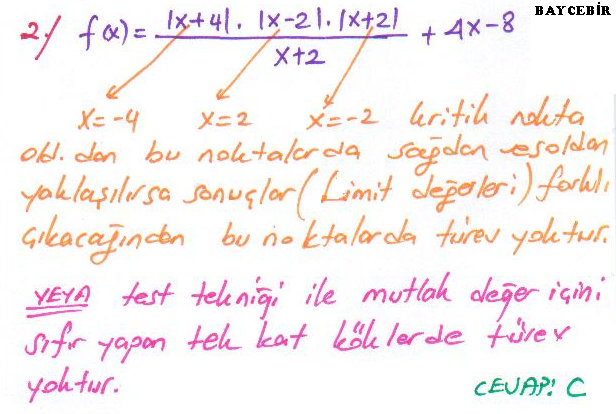 BAYCEBİR
2-/ f(x) = |x+4| . |x-2| . |x+2| / x+2 + 4x-8
x=-4 x=2 x=-2 kritik nokta
old. dan bu noktalarda sağdan ve soldan
yaklaşılırsa sonuçlar (Limit değerleri) farklı
çıkacağından bu noktalarda türev yoktur.
VEYA test tekniği ile mutlak değer içini
sıfır yapan tek kat köklerde türev
yoktur.
CEVAP: C